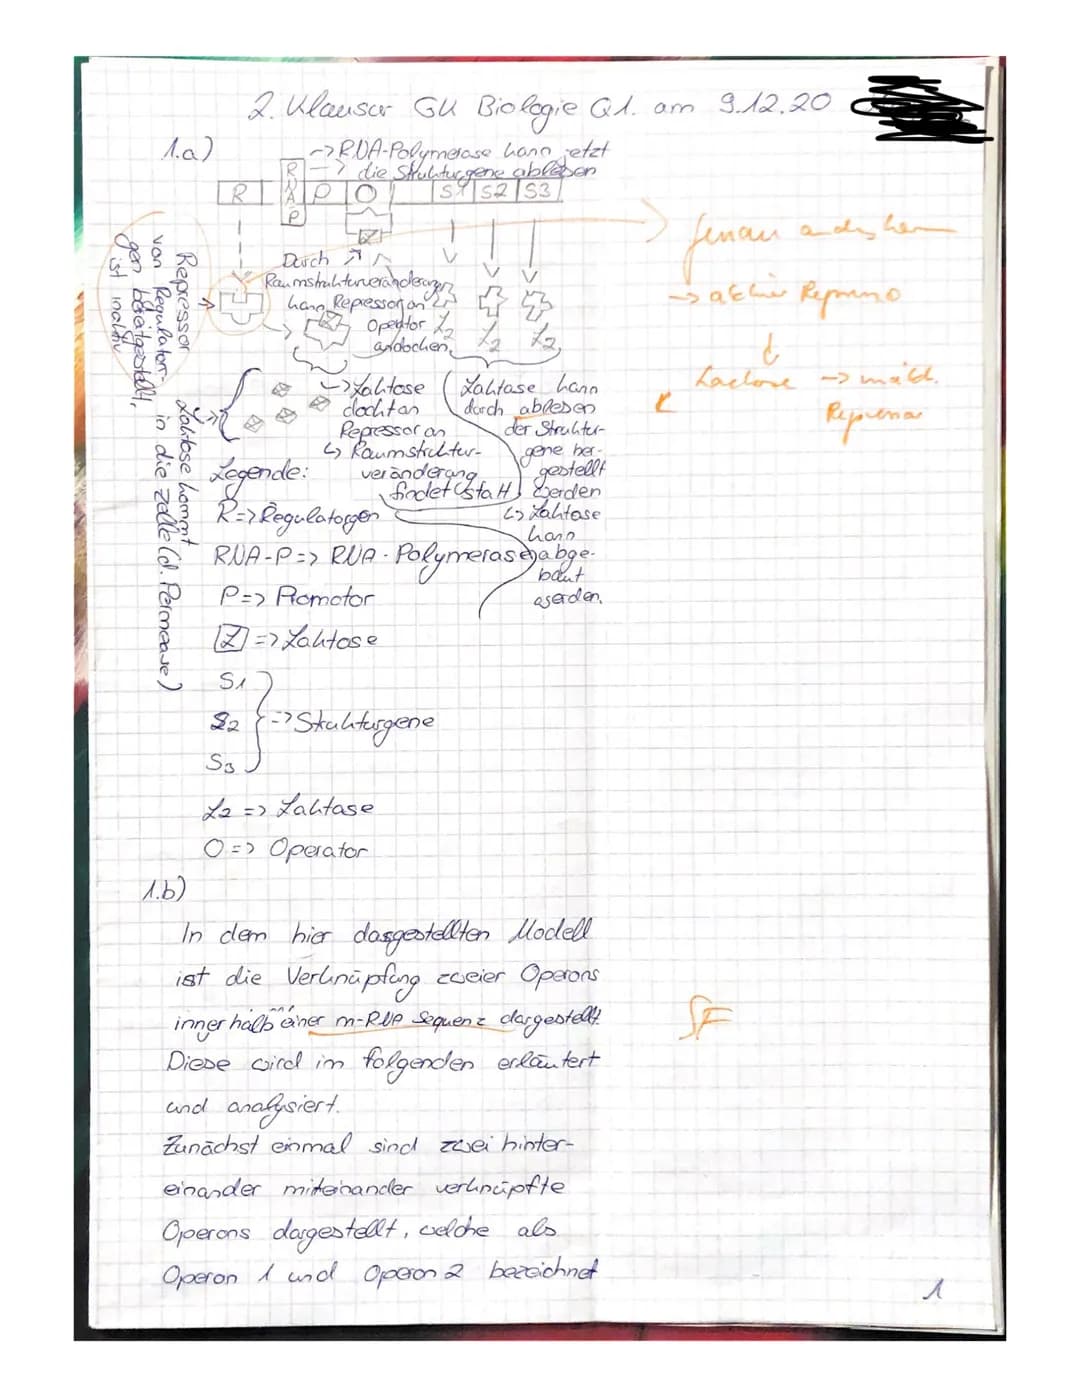 2. Klausur GK Biologie Q1. am 9.12.20
1.a)
-> RNA-Polymerase kann jetzt
-> die Strukturgene ablesen
R RNAP P O S1 S2 S3
Durch
Raumstrukturveränderung
kann Repressor an
Operator
andocken.
L2 L2 L2
Repressor
von Regulator-
gen bereitgestellt,
ist inaktiv
Laktose kommt
in die Zelle (d. Permease)
-> Laktose
dockt an
Repressor an
↳ Raumstruktur-
veränderung
findet statt
Laktase kann
durch ablesen
der Struktur-
gene her-
gestellt
werden
↳ Laktose
kann
abge-
baut
werden.
genau andersherum
-> aktiver Repressor
Lactose -> inakt.
Repressor
Legende:
R => Regulatorgen
RNA-P => RNA-Polymerase
P => Promotor
=> Laktose
S1
S2 => Strukturgene
S3
L2 => Laktase
O => Operator
1.b)
In dem hier dargestellten Modell
ist die Verknüpfung zweier Operons
innerhalb einer m-RNA Sequenz dargestellt.
SF
Diese wird im folgenden erläutert
und analysiert.
Zunächst einmal sind zwei hinter-
einander miteinander verknüpfte
Operons dargestellt, welche als
Operon 1 und Operon 2 bezeichnet
1